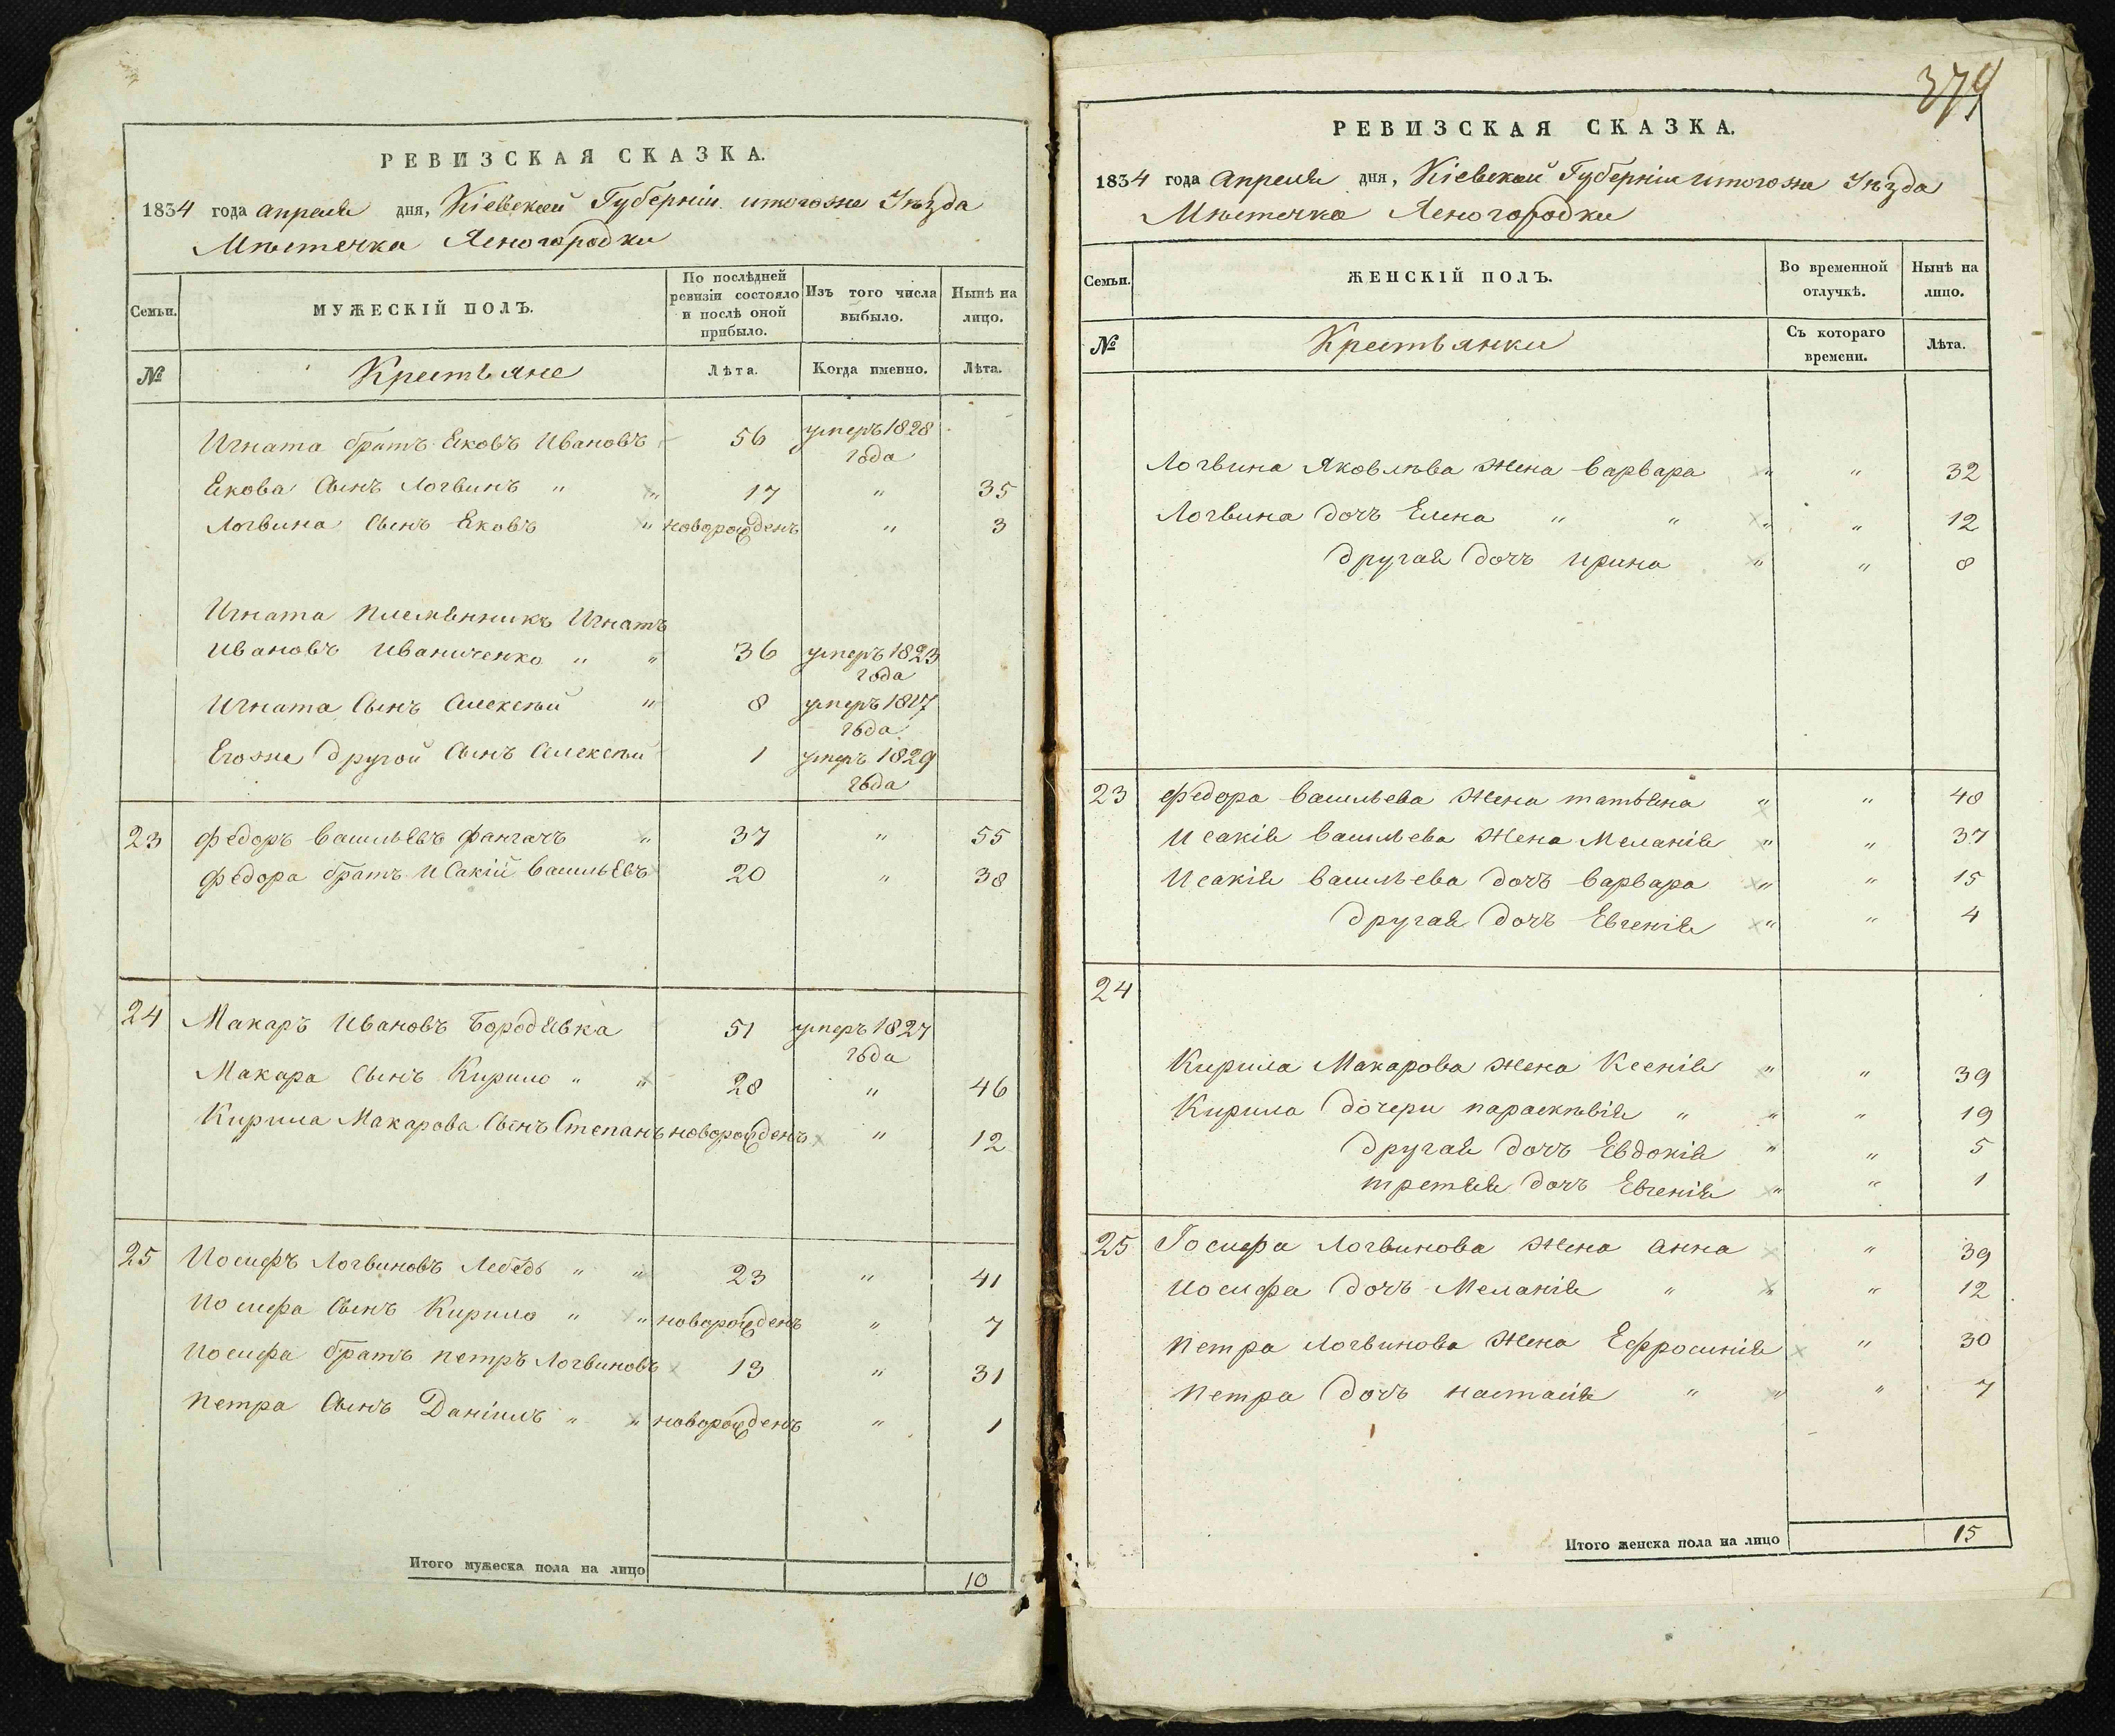 РЕВИЗСКАЯ СКАЗКА.
1834 года Апреля дня, Кіевской Губерніи итогоже Уѣзда
Мѣстечка Ясногородки
Семьи.
МУЖЕСКІЙ ПОЛЪ.
По послѣдней ревизіи состояло и послѣ оной прибыло.
Изъ того числа выбыло.
Нынѣ на лицо.
№
Крестьяне
Лѣта.
Когда именно.
Лѣта.
Игната братъ Яковъ Ивановъ 56 умеръ 1828
года
Якова Сынъ Логвинъ " " 17 " 35
Логвина Сынъ Яковъ " новорожденъ " 3
Игната племянникъ Игнатъ
Ивановъ Иваниченко " " 36 умеръ 1823
года
Игната Сынъ Алексѣй " 8 умеръ 1817
года
Егоже другой Сынъ Алексѣй 1 умеръ 1829
года
23 Федоръ Васильевъ Фангачъ " 37 " 55
Федора братъ Исакій Васильевъ 20 " 38
24 Макаръ Ивановъ Бородявка 51 умеръ 1827
года
Макара Сынъ Кирило " " 28 " 46
Кирила Макарова Сынъ Степанъ новорожденъ " 12
25 Иосифъ Логвиновъ Лебедь " " 23 " 41
Иосифа Сынъ Кирило " " новорожденъ " 7
Иосифа братъ Петръ Логвиновъ 13 " 31
Петра Сынъ Даніилъ " " новорожденъ " 1
Итого мужеска пола на лицо 10
379
РЕВИЗСКАЯ СКАЗКА.
1834 года Апреля дня, Кіевской Губерніи итогоже Уѣзда
Мѣстечка Ясногородки
Семьи.
ЖЕНСКІЙ ПОЛЪ.
Во временной отлучкѣ.
Нынѣ на лицо.
№
Крестьянки
Съ котораго времени.
Лѣта.
Логвина Яковлѣва Жена Варвара " " 32
Логвина дочъ Елена " " " " 12
другая дочъ Ирина " " 8
23 Федора Васильева Жена татьяна " " 48
Исакія Васильева Жена Меланія " " 37
Исакія Васильева дочъ Варвара " " 15
другая дочъ Евгенія " " 4
24
Кирила Макарова Жена Ксенія " " 39
Кирила дочери параскѣвія " " " 19
другая дочъ Евдокія " " 5
третья дочъ Евгенія " " 1
25 Іосифа Логвинова Жена Анна " 39
Иосифа дочъ Меланія " " " 12
Петра Логвинова Жена Ефросинія " 30
Петра дочъ Настасія " " " 7
Итого женска пола на лицо 15